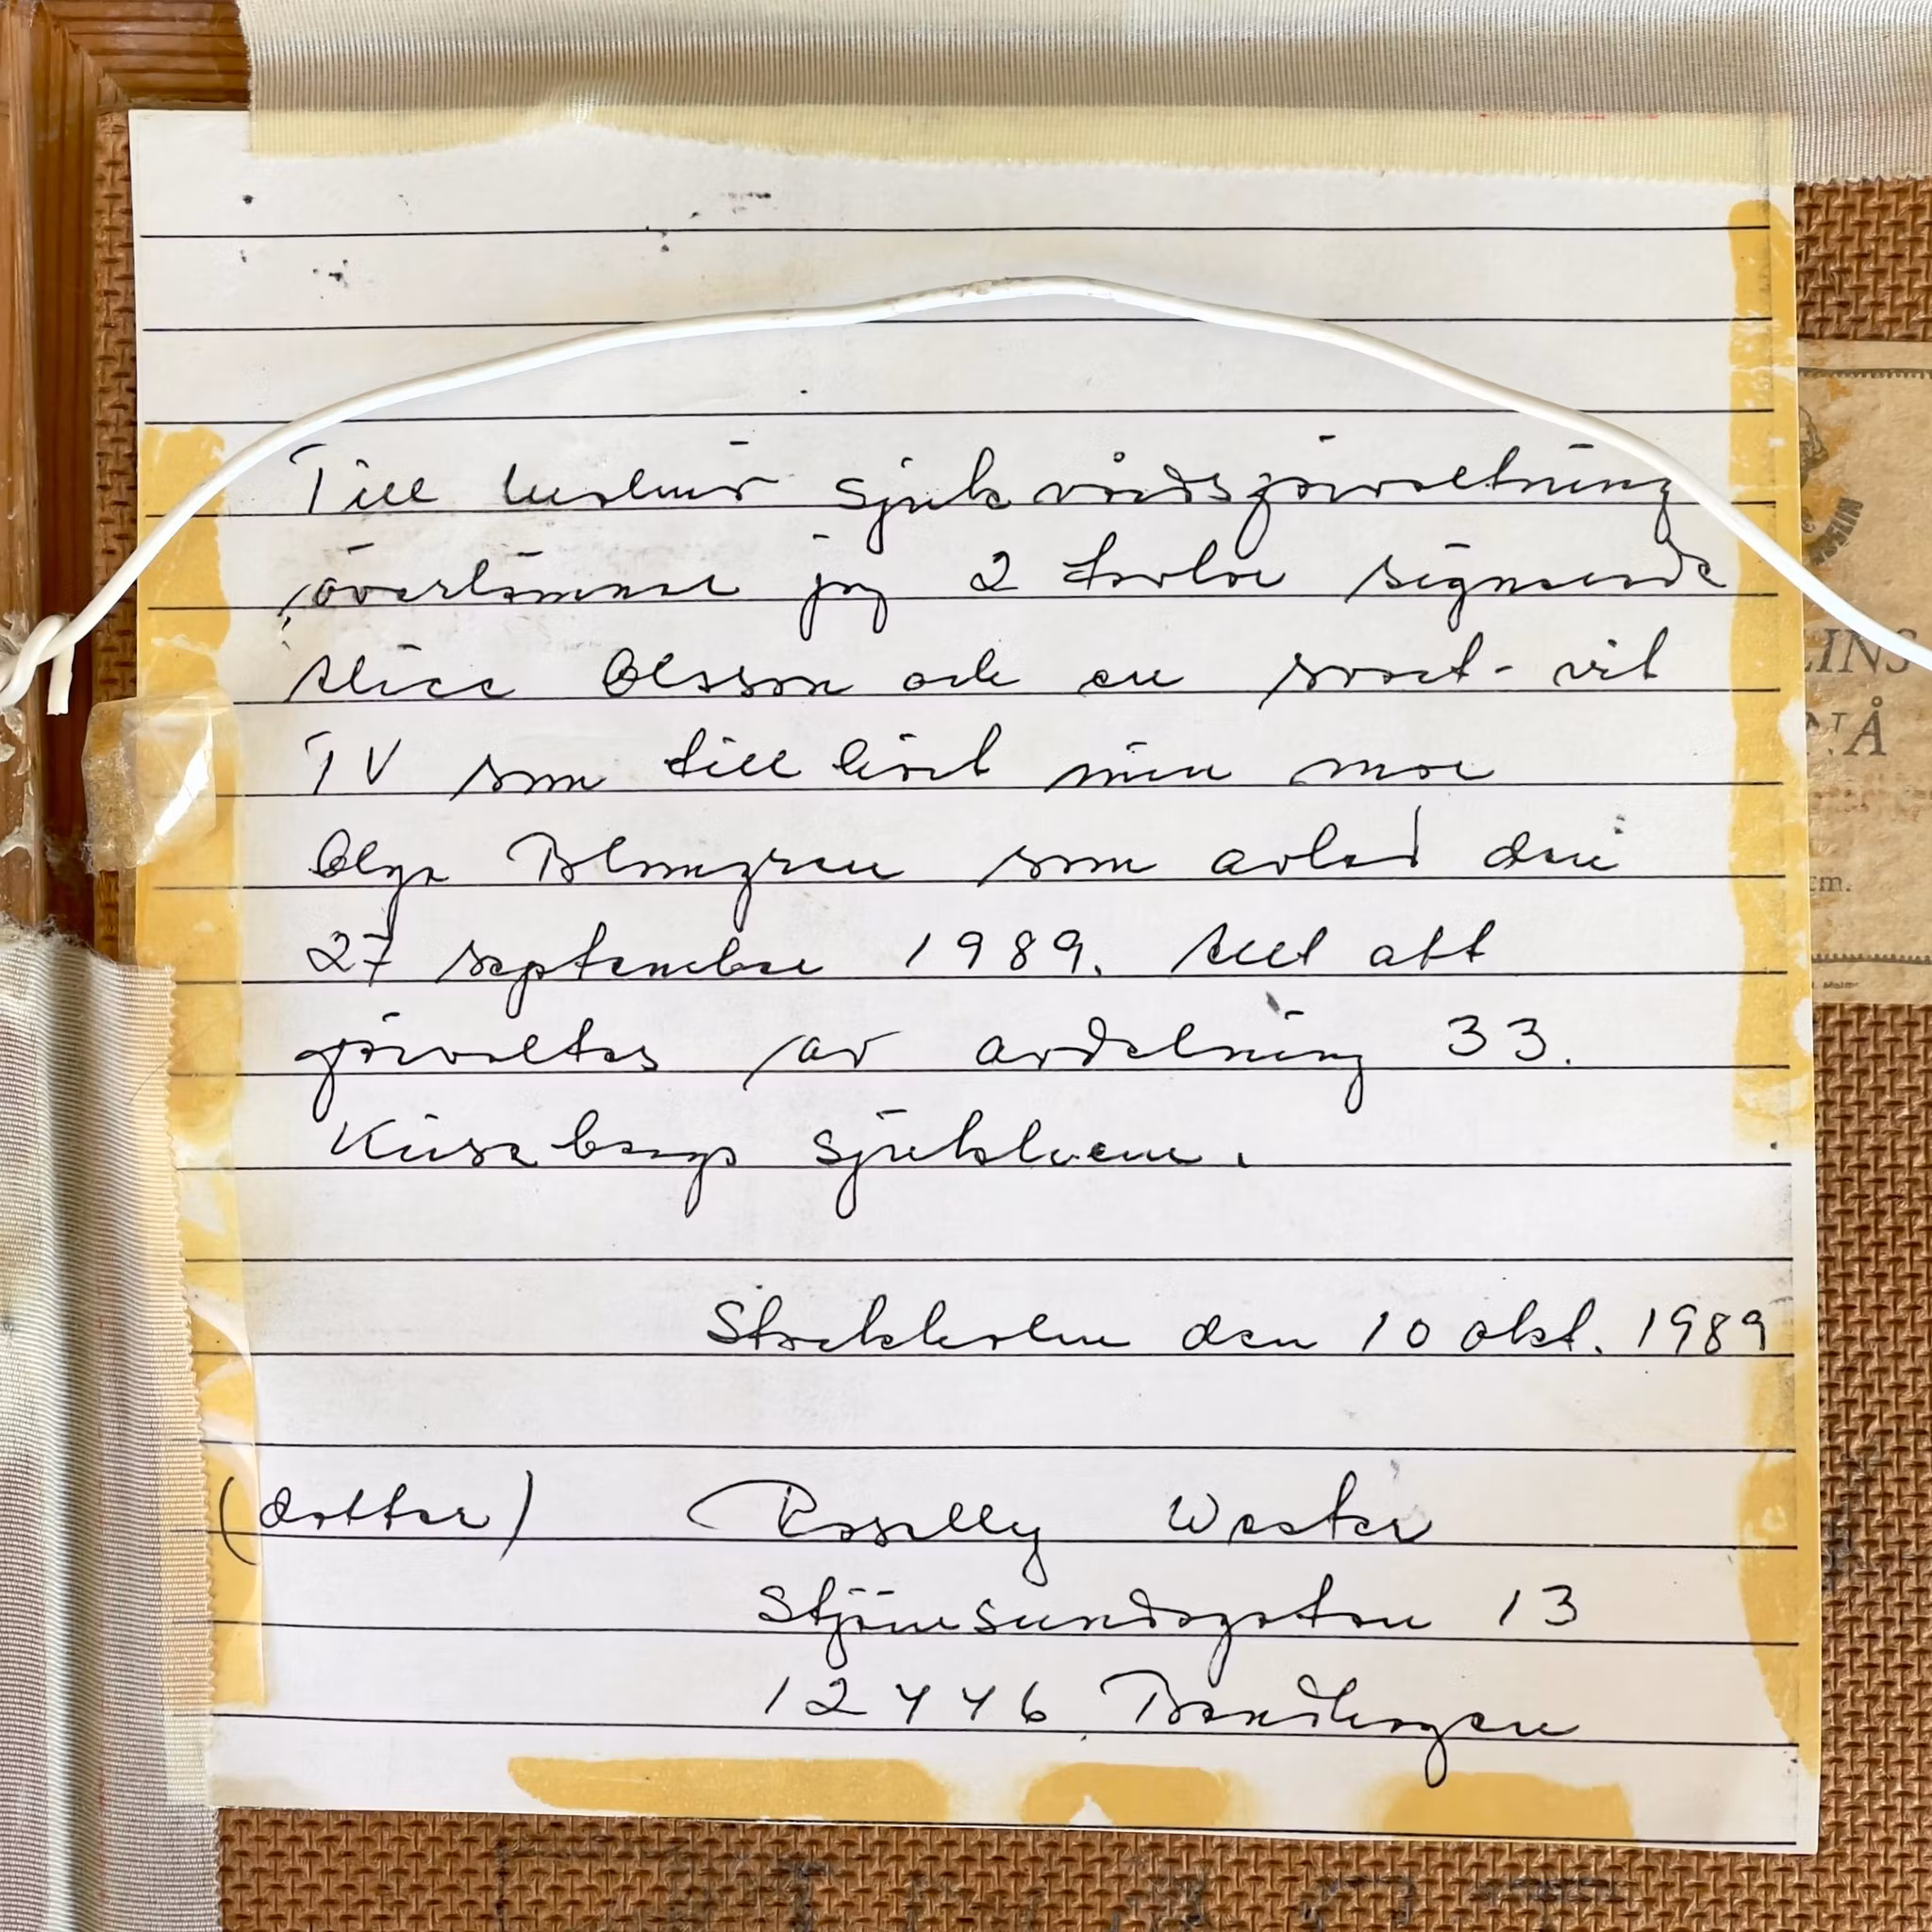 Till sjukvårdsförvaltning
överlämnar jag 2 tavlor signerade
Alice Olsson och en svart-vit
TV som tillhört min mor
Olga Blomgren som avled den
27 september 1989. Allt att
förvaltas av avdelning 33.
sjukhem.
Stockholm den 10 okt. 1989
(dotter) Roselly Wester
Stjärnsundsgatan 13
12446 Bandhagen
LINS
NÅ
cm.